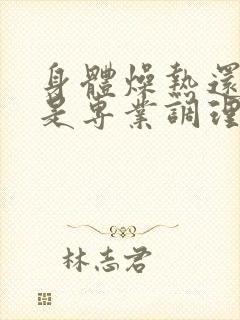 身體燥熱還
是專業調理
林志君